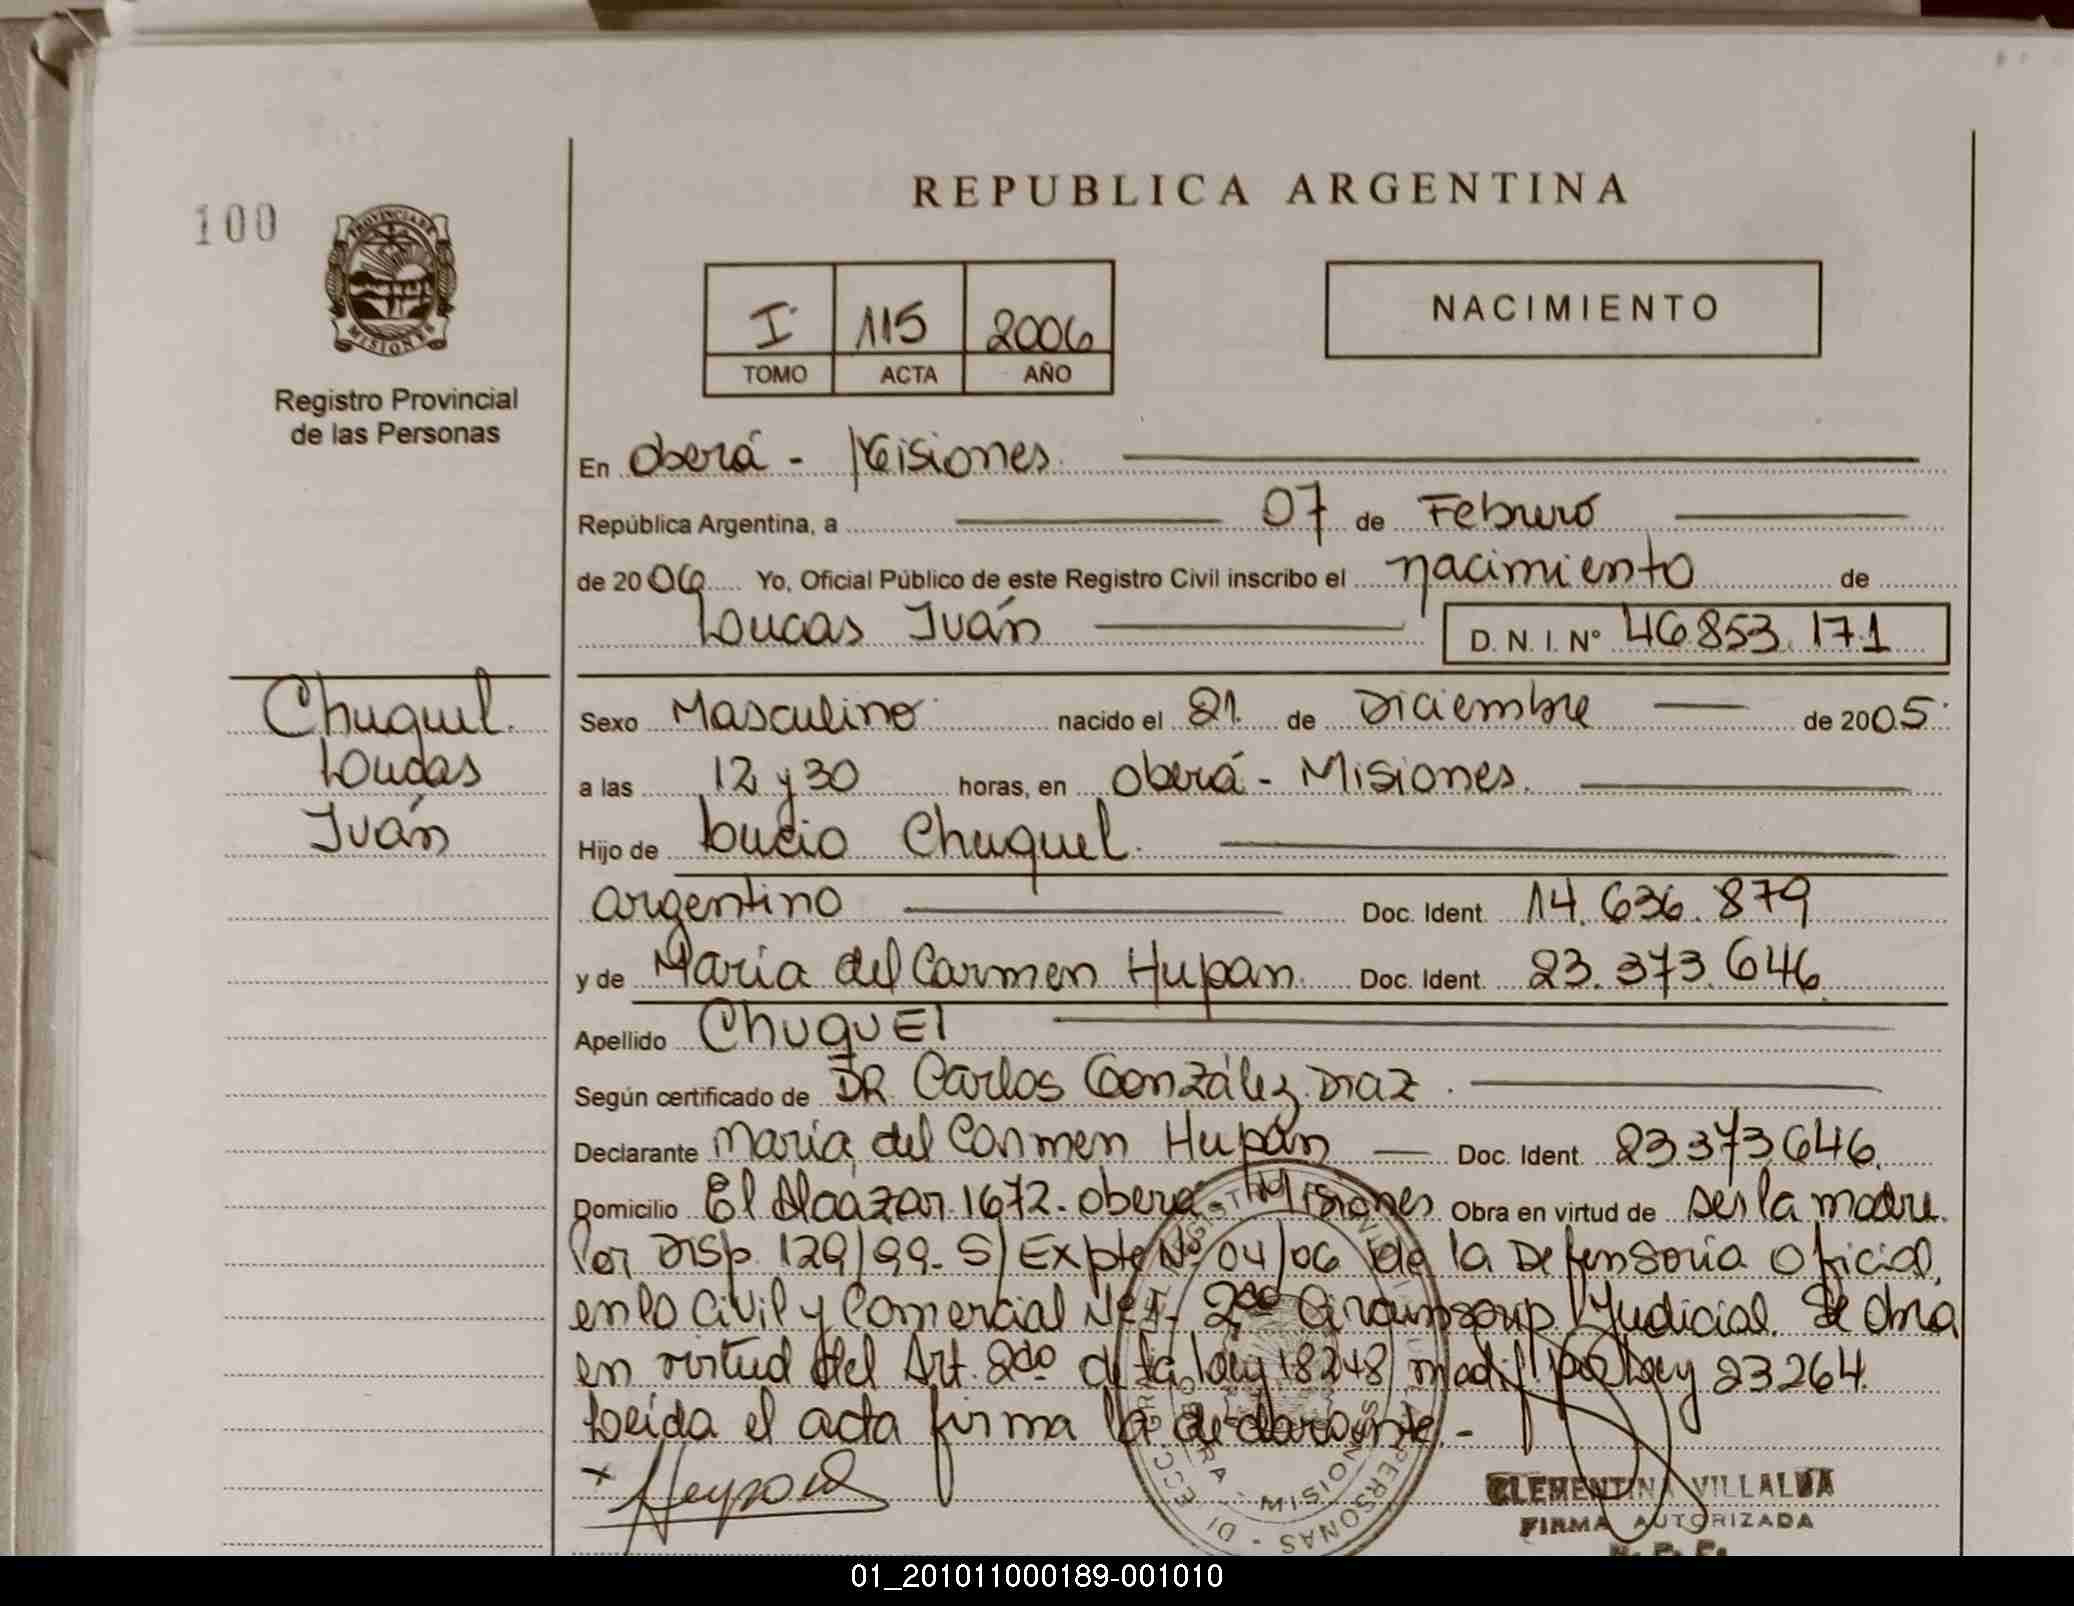 REPUBLICA ARGENTINA
100
PROVINCIA DE
MISIONES
Registro Provincial
de las Personas
I 115 2006
TOMO ACTA AÑO
NACIMIENTO
En Oberá - Misiones.
República Argentina, a 07 de Febrero
de 2006 Yo, Oficial Público de este Registro Civil inscribo el nacimiento de
Loucas Iván D. N. I. N° 46.853.171
Chuquel.
Loucas
Iván
Sexo Masculino nacido el 21. de Diciembre de 2005.
a las 12 y 30 horas, en Oberá - Misiones.
Hijo de Lucio Chuquel.
argentino Doc. Ident. 14.636.879
y de María del Carmen Hupan. Doc. Ident. 23.373.646
Apellido Chuquel
Según certificado de DR. Carlos González Diaz.
Declarante María del Carmen Hupán Doc. Ident. 23373646.
Domicilio El Alcázar 1672. Oberá - Misiones Obra en virtud de ser la madre.
Por Disp. 129/99- S/ Expte Nº 04/06 de la Defensoría Oficial,
en lo Civil y Comercial Nº 1- 2da Circunscrip. Judicial. Se obra
en virtud del Art. 2do de la Ley 18248 modif por Ley 23264.
Leida el acta firma la declarante.-
CLEMENTINA VILLALVA
FIRMA AUTORIZADA
01_201011000189-001010